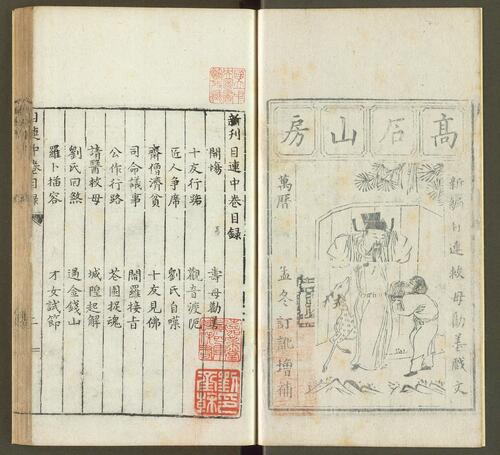 高石山房
新編目連救母勸善戲文
萬曆
孟冬訂訛增補
新刊目連中卷目錄
開塲 壽母勸善
十友行路 觀音渡厄
匠人爭席 劉氏自嘆
齋僧濟貧 十友見佛
司命議事 閻羅接旨
公作行路 花園捉魂
請醫救母 城隍起解
劉氏回煞 過金錢山
羅卜描容 才女試節
目連中卷目錄